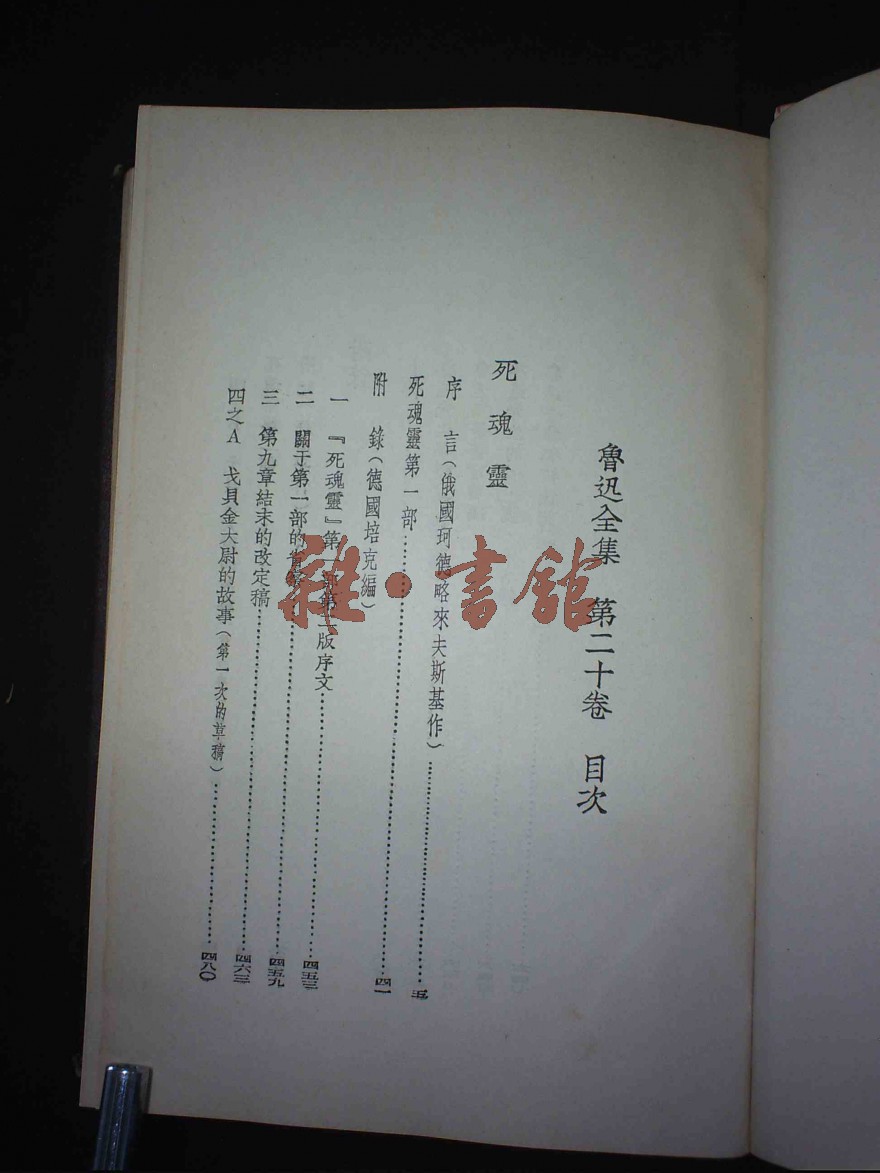 魯迅全集 第二十卷 目次
死魂靈
序 言(俄國珂德略來夫斯基作)……五
死魂靈第一部……四一
附 錄(德國培克編)
一 『死魂靈』第 版序文……四五三
二 關于第一部的 ……四五九
三 第九章結末的改定稿……四六三
四之A 戈貝金大尉的故事(第一次的草稿)……四八〇
雜·書館